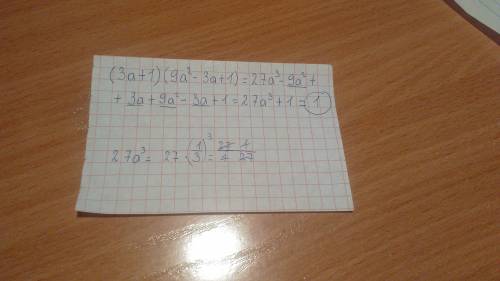 (3a+1)(9a²-3a+1)=27a³-9a²+
+3a+9a²-3a+1=27a³+1=1
27a³= 27·(1/3)³= 27/1 1/27